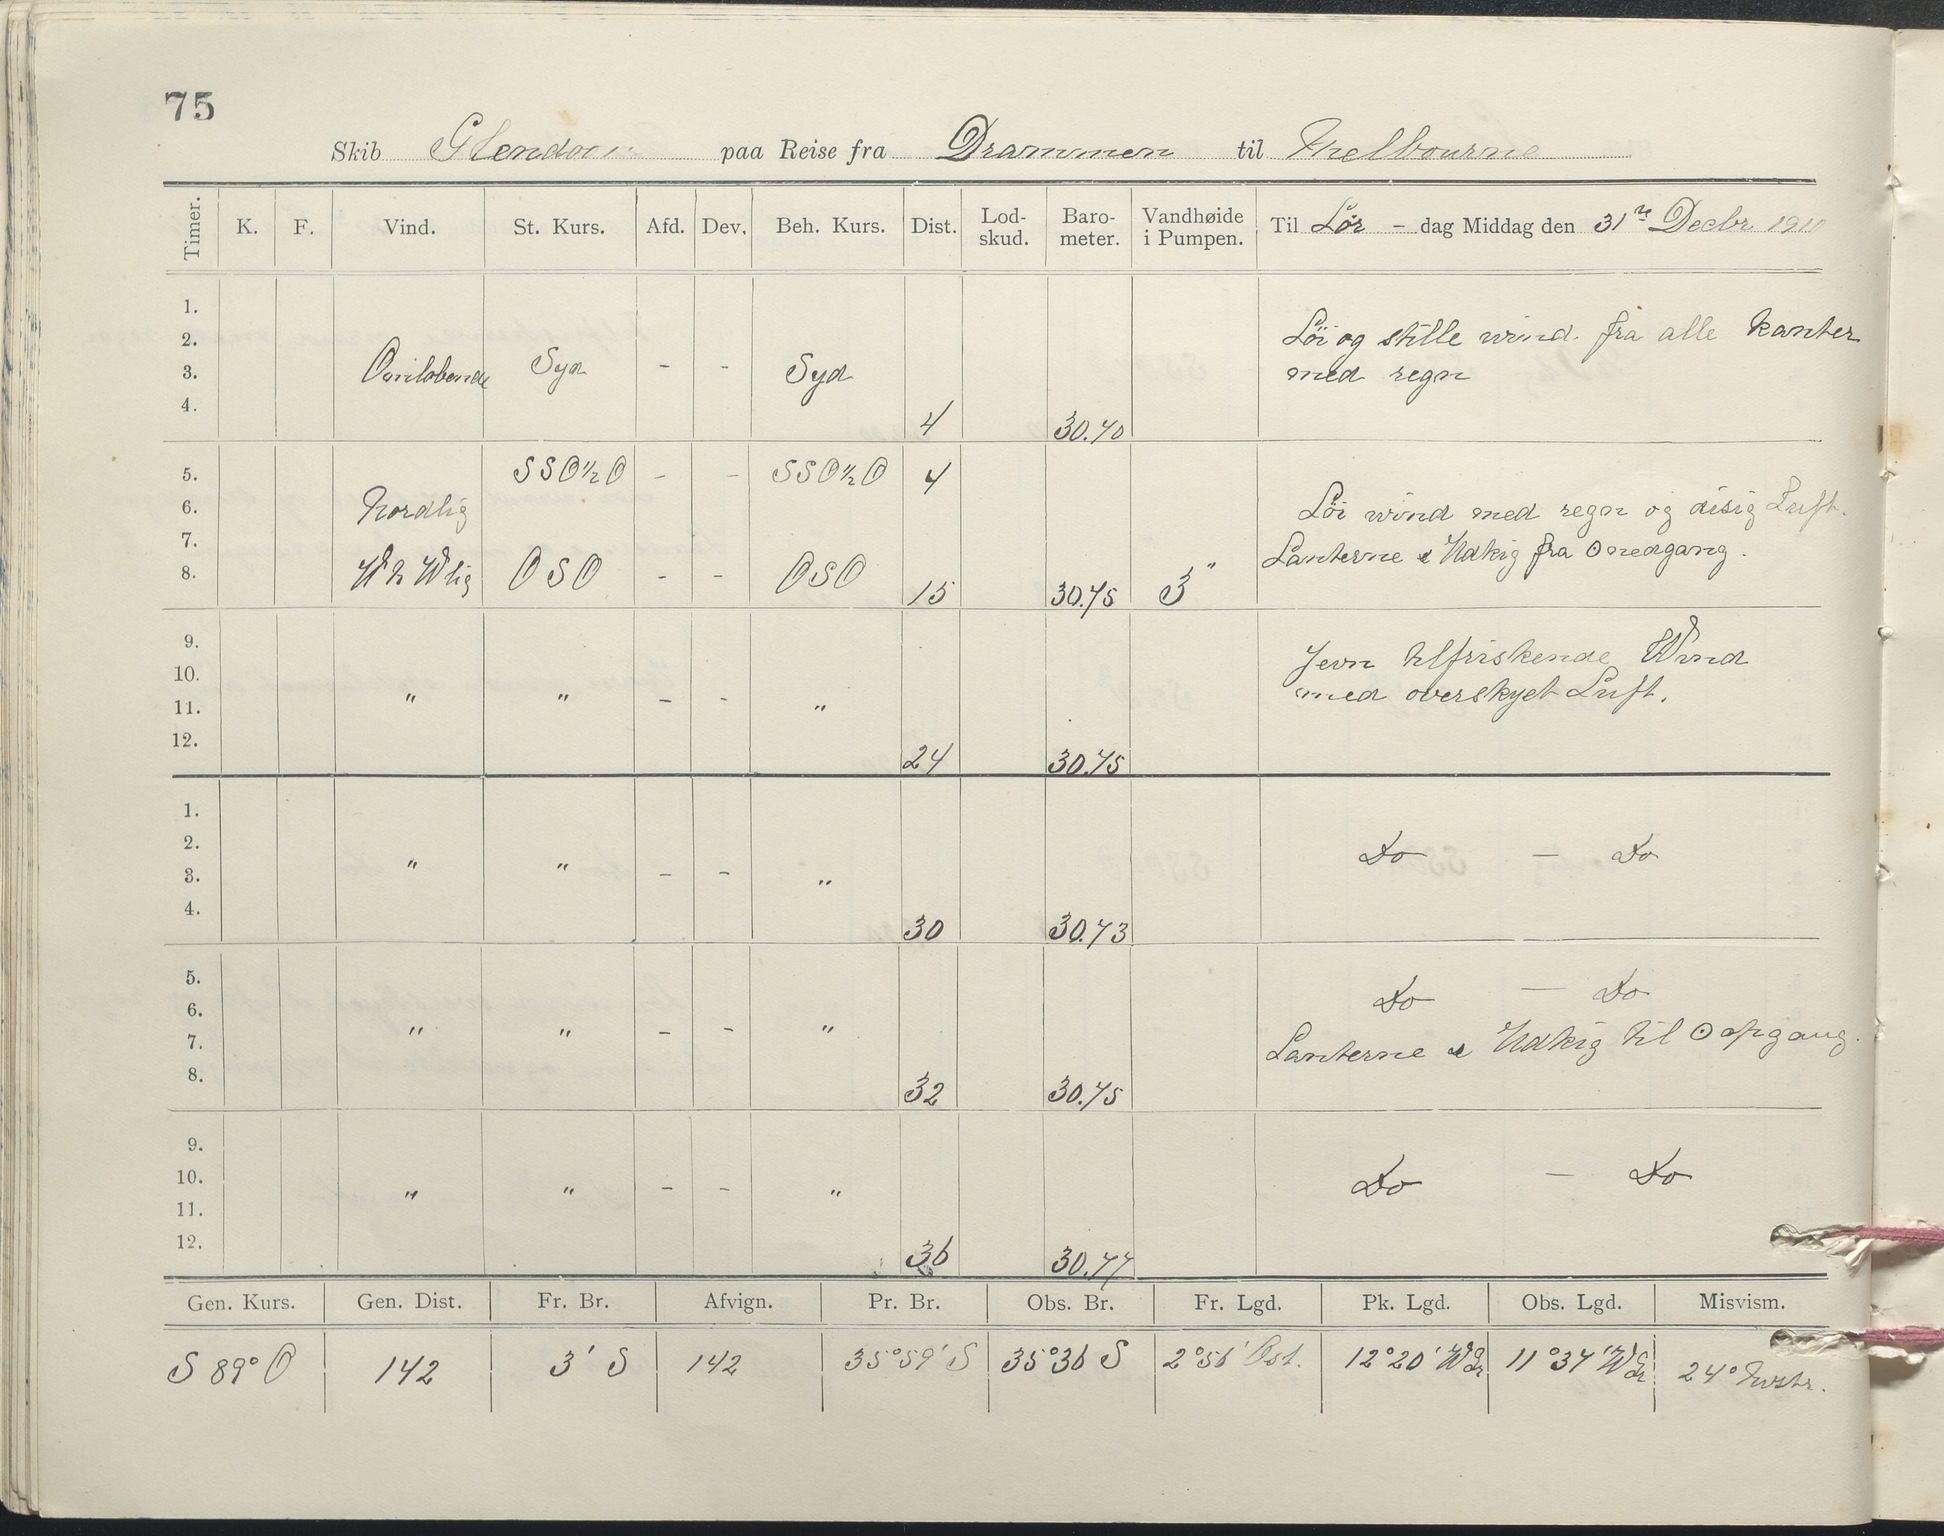 75
Skib Glendoon paa Reise fra Drammen til Melbourne
Timer. K. F. Vind. St. Kurs. Afd. Dev. Beh. Kurs. Dist. Lod-skud. Baro-meter. Vandhøide i Pumpen. Til Lør - dag Middag den 31te Decbr 1910
1.
2. Löi og stille wind. fra alle kanter
3. Omlobende Syd - - Syd med regn
4. 4 30.70
5. SSO½O - - SSO½O 4
6. Nordlig Löi wind med regn og disig Luft.
7. Lanterne & Udkig fra ⊙nedgang.
8. WNWlig OSO - - OSO 15 30.75 3"
9. Jevn tilfriskende Wind
10. med overskyet Luft.
11. " " - - "
12. 24 30.75
1.
2. Do — Do
3. " " - - "
4. 30 30.73
5. Do — Do
6. Lanterne & Udkig til ⊙opgang.
7. " " - - "
8. 32 30.75
9.
10. " " - - " Do — Do
11.
12. 36 30.77
Gen. Kurs. Gen. Dist. Fr. Br. Afvign. Pr. Br. Obs. Br. Fr. Lgd. Pk. Lgd. Obs. Lgd. Misvism.
S 89° O 142 3' S 142 35°59' S 35°36 S 2°56' Ost. 12°20' W Gr 11°37' W Gr 24°